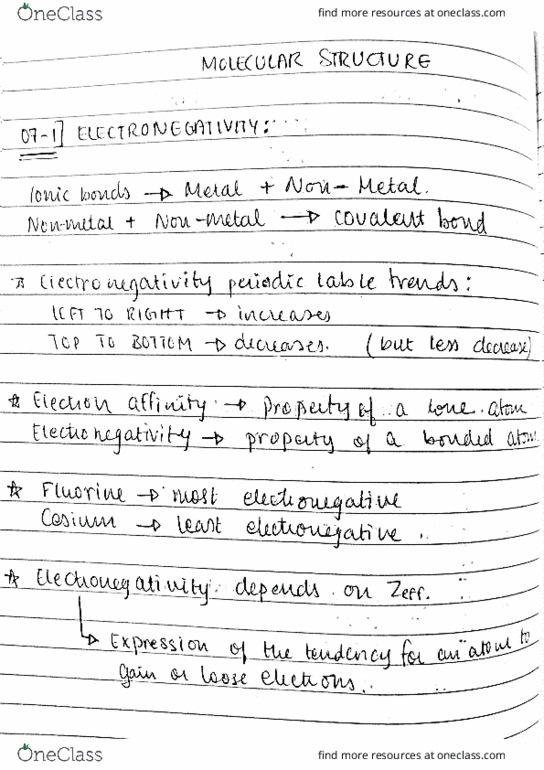 OneClass
find more resources at oneclass.com
MOLECULAR STRUCTURE
07-1] ELECTRONEGATIVITY:
Ionic bonds → Metal + Non-Metal.
Non-metal + Non-metal → covalent bond
* Electronegativity periodic table trends:
LEFT TO RIGHT → increases
TOP TO BOTTOM → decreases. (but less decrease)
* Electron affinity → property of a lone atom
Electronegativity → property of a bonded atom
* Fluorine → most electronegative
Cesium → least electronegative.
* Electronegativity depends on Zeff.
↳ Expression of the tendency for an atom to
gain or loose electrons.
OneClass
find more resources at oneclass.com